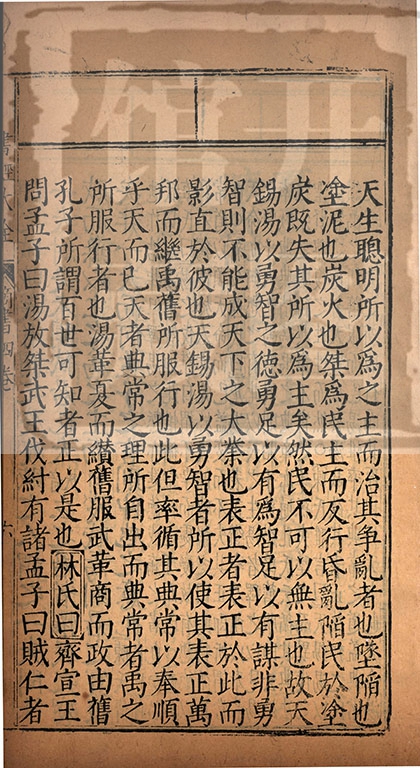 天生聰明所以為之主而治其争亂者也墜陷也
塗泥也炭火也桀為民主而反行昏亂陷民於塗
炭既失其所以為主矣然民不可以無主也故天
錫湯以勇智之徳勇足以有為智足以有謀非勇
智則不能成天下之大業也表正者表正於此而
影直於彼也天錫湯以勇智者所以使其表正萬
邦而繼禹舊所服行也此但率循其典常以奉順
乎天而已天者典常之理所自出而典常者禹之
所服行者也湯革夏而纉舊服武革商而政由舊
孔子所謂百世可知者正以是也林氏曰齊宣王
問孟子曰湯放桀武王伐紂有諸孟子曰賊仁者
書經大全
商書四卷
六
开馆